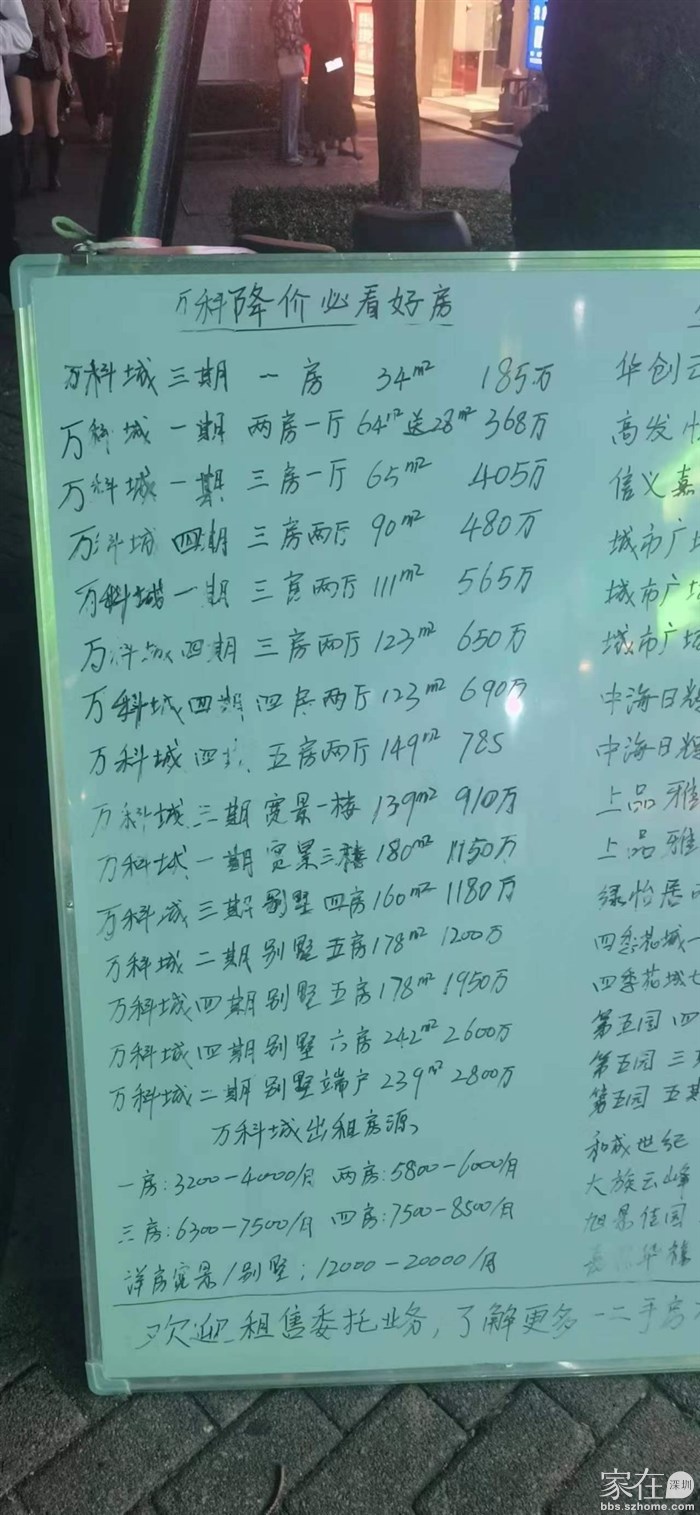 万科降价必看好房
万科城三期 一房 34m² 185万
万科城一期 两房一厅 64m²送28m² 368万
万科城一期 三房一厅 65m² 405万
万科城四期 三房两厅 90m² 480万
万科城一期 三房两厅 111m² 565万
万科城四期 三房两厅 123m² 650万
万科城四期 四房两厅 123m² 690万
万科城四 五房两厅 149m² 785
万科城三期 宽景一楼 139m² 910万
万科城一期 宽景三楼 180m² 1150万
万科城三期别墅 四房 160m² 1180万
万科城二期别墅 五房 178m² 1200万
万科城四期别墅 五房 178m² 1950万
万科城四期别墅 六房 242m² 2600万
万科城二期别墅端户 239m² 2800万
万科城出租房源
一房:3200-4000/月 两房:5800-6000/月
三房:6300-7500/月 四房:7500-8500/月
洋房宽景/别墅:12000-20000/月
华创云
高发
信义嘉
城市广场
城市广场
城市广场
中海日辉
中海日辉
上品雅
上品雅
绿怡居
四季花城一
四季花城七
第五园 四
第五园 三
第五园 五期
和成世纪
大族云峰
旭景佳园
欢迎租售委托业务,了解更多一二手房
家在深圳
bbs.szhome.com